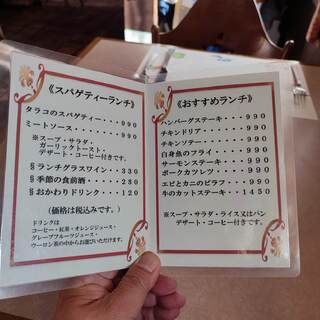 《スパゲティーランチ》
タラコのスパゲティー・・・990
ミートソース・・・・・・・990
※スープ・サラダ・
ガーリックトースト・
デザート・コーヒー付きです。
§ランチグラスワイン・・・330
§季節の食前酒・・・・・・230
§おかわりドリンク・・・・120
(価格は税込みです。)
ドリンクは
コーヒー・紅茶・オレンジジュース・
グレープフルーツジュース・
ウーロン茶の中からお選びいただけます。
《おすすめランチ》
ハンバーグステーキ・・・990
チキンドリア・・・・・・990
チキンソテー・・・・・・990
白身魚のフライ・・・・・990
サーモンステーキ・・・・990
ポークカツレツ・・・・・990
エビとカニのピラフ・・・990
牛のカットステーキ・・・1450
※スープ・サラダ・ライス又はパン
デザート・コーヒー付きです。